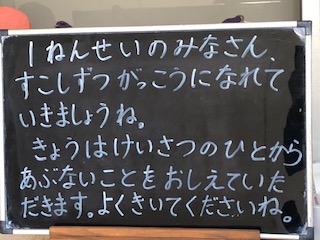 1ねんせいのみなさん、
すこしずつがっこうになれて
いきましょうね。
きょうはけいさつのひとから
あぶないことをおしえていた
だきます。よくきいてくださいね。